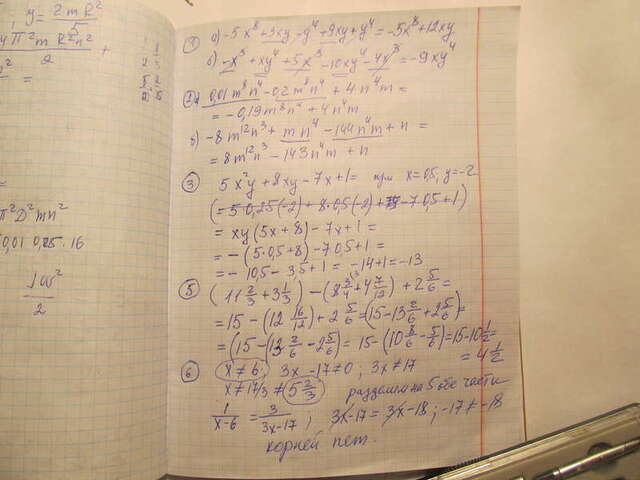 y = 2mR²/5
4π²m R²n² +
2
=
π²D²mn²
0,01 0,25 · 16
Jω²
2
① а) -5x⁸ + 3xy - y⁴ + 9xy + y⁴ = -5x⁸ + 12xy
б) -x³ + xy⁴ + 5x³ - 10xy⁴ - 4x³ = -9xy⁴
0,01m⁸n⁴ - 0,2m⁸n⁴ + 4n⁴m =
= -0,19m⁸n⁴ + 4n⁴m
в) -8m¹²n³ + mn⁴ - 144n⁴m + n =
= 8m¹²n³ - 143n⁴m + n
③ 5x²y + 8xy - 7x + 1 = при x=0,5, y=-2
(= 5·0,25(-2) + 8·0,5(-2) + -7·0,5+1)
= xy(5x+8) - 7x+1 =
= -(5·0,5+8) - 7·0,5+1 =
= -10,5 - 3,5+1 = -14+1 = -13
⑤ (11 2/3 + 3 1/3) - (8 3/4 + 4 7/12) + 2 5/6 =
= 15 - (12 16/12) + 2 5/6 = (15 - 13 2/6 + 2 5/6) =
= (15 - (13 2/6 - 2 5/6) = 15 - (10 8/6 - 5/6) = 15 - 10 1/2 =
= 4 1/2
⑥ x≠6; 3x-17≠0; 3x≠17
x≠17/3 ≠ 5 2/3 разделим на 5 обе части
1/(x-6) = 3/(3x-17); 3x-17 = 3x-18; -17≠-18
корней нет.